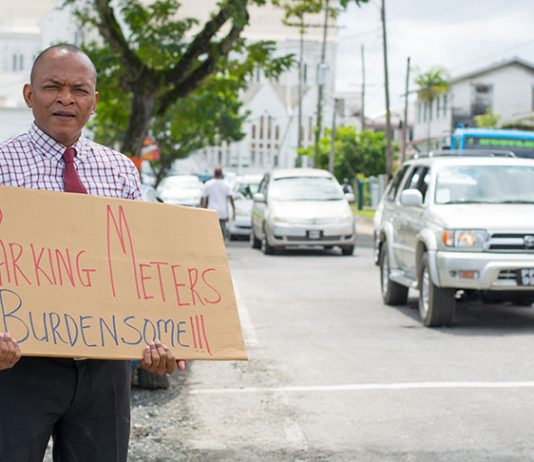 Parking Meters
Burdensome!!!